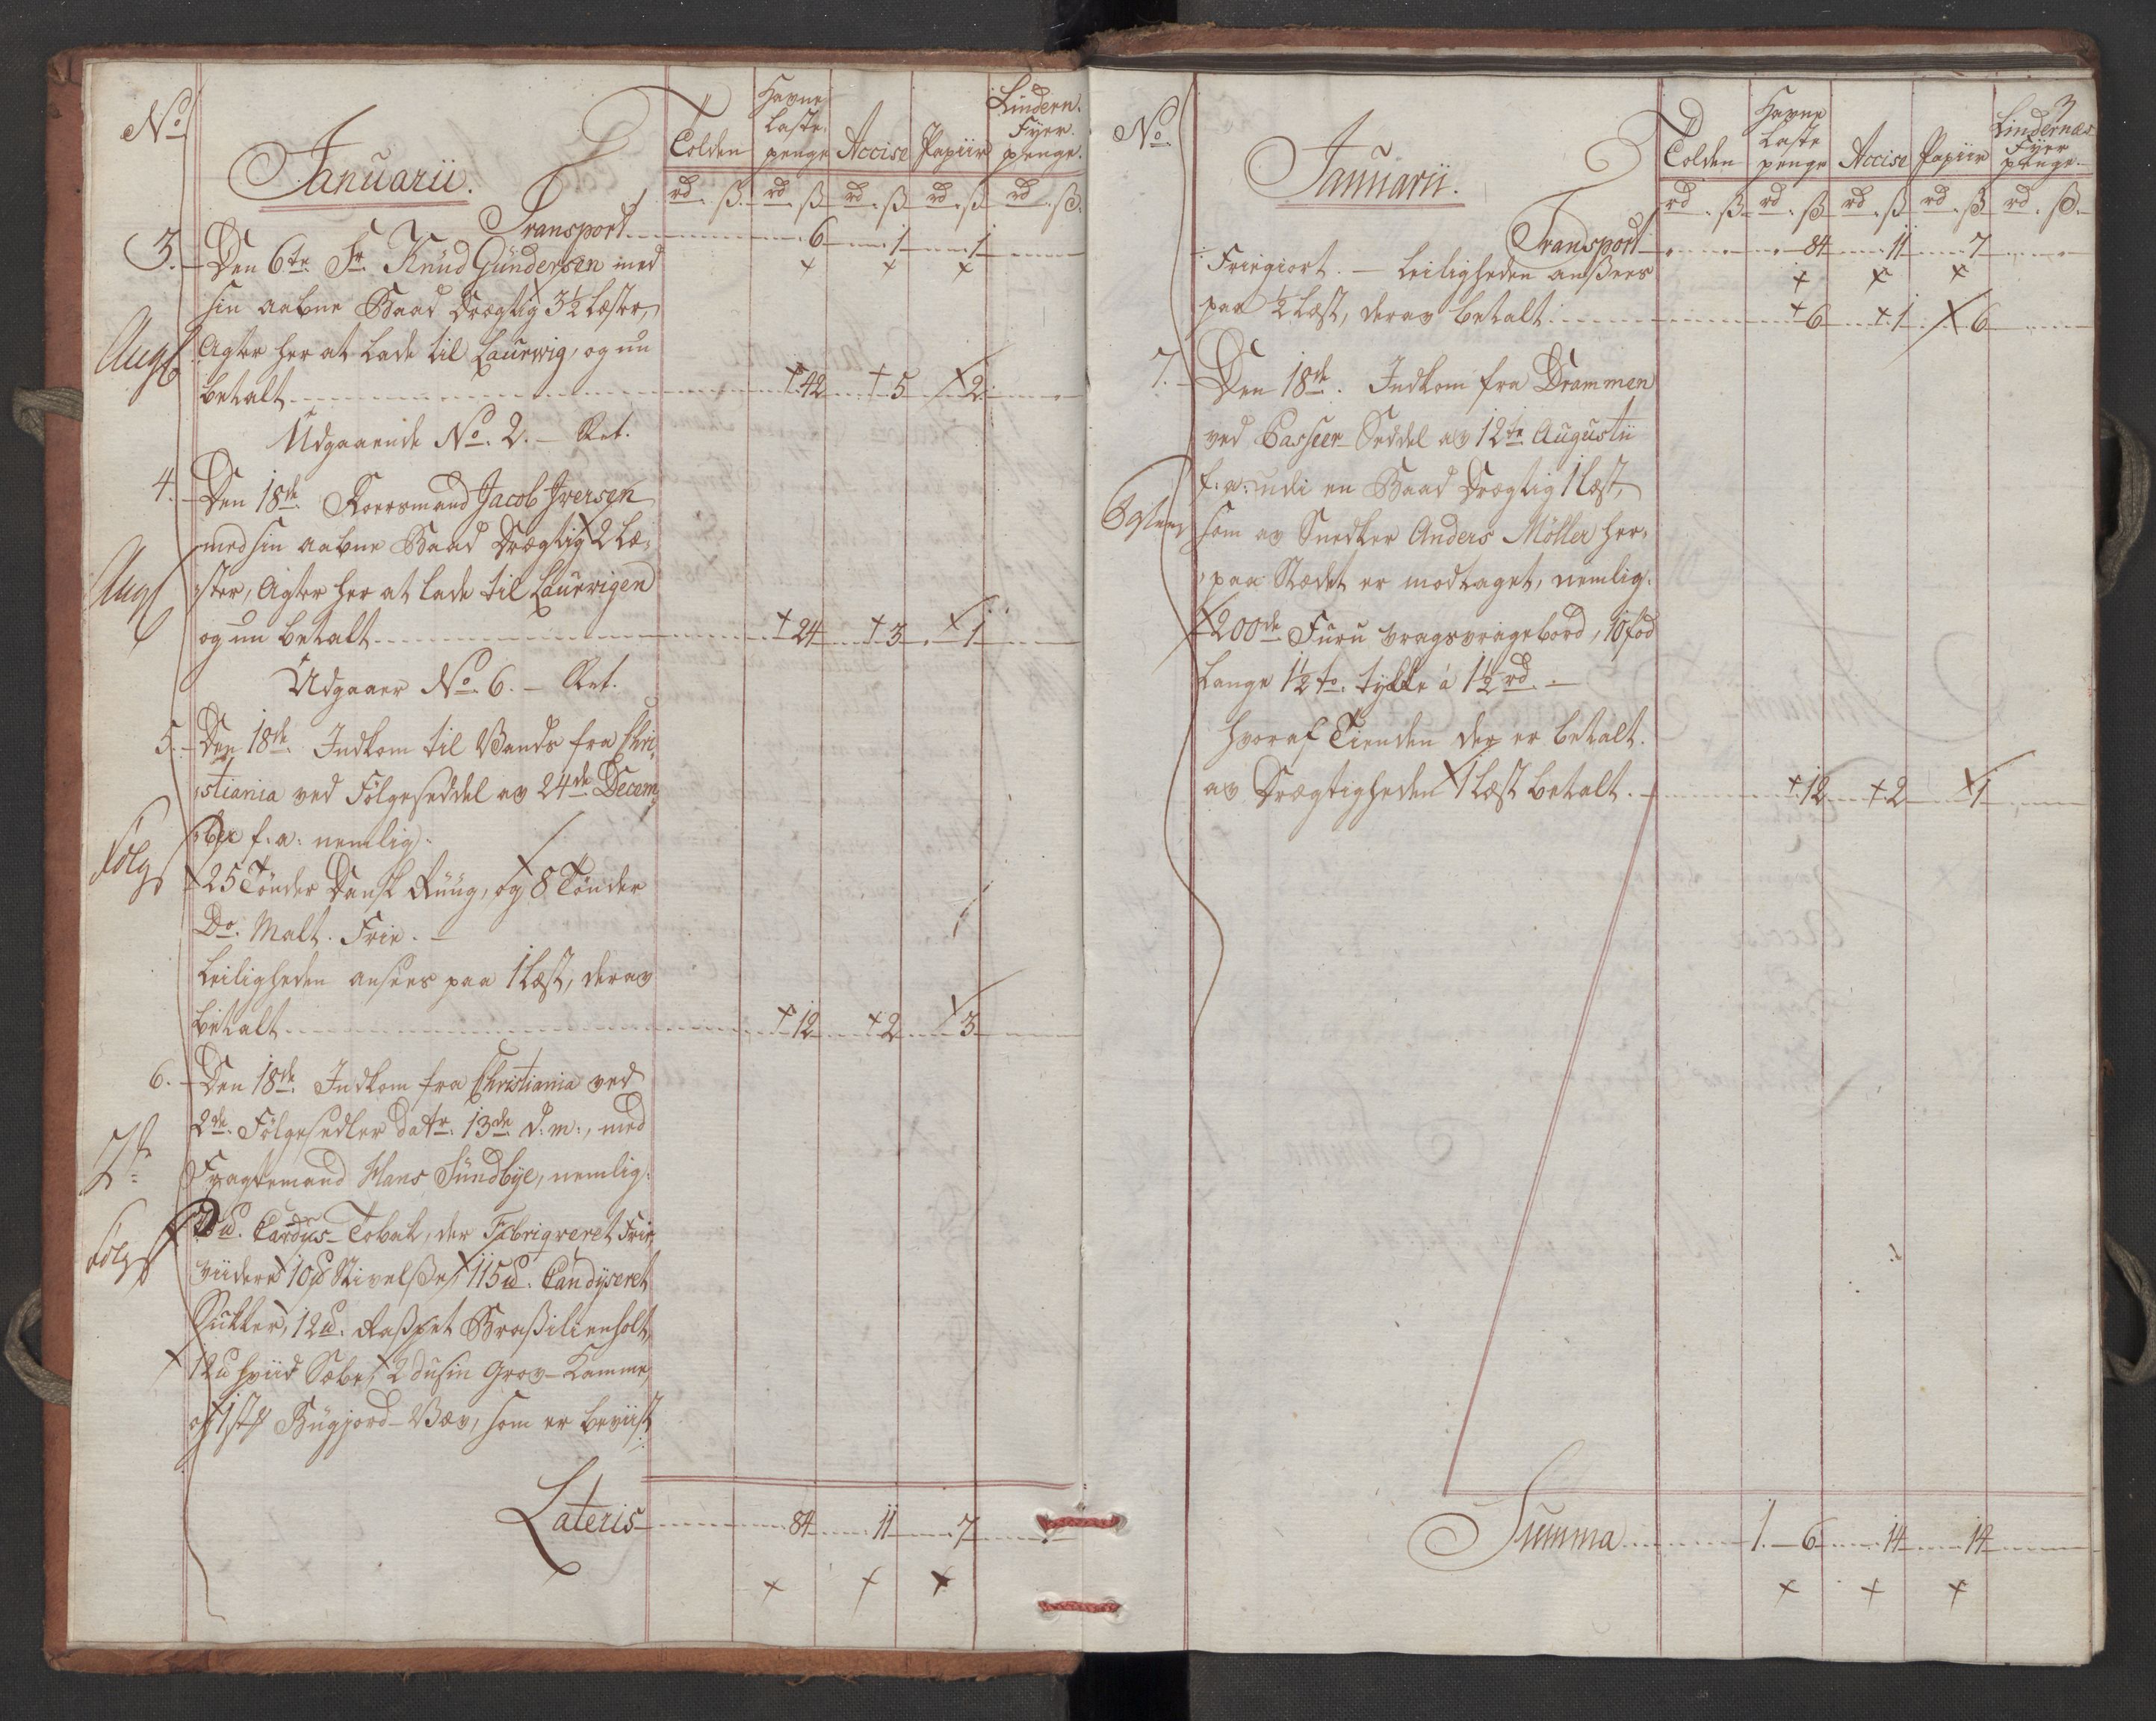 No
Januarii.
Tolden
Havne
Laste
penge
Accise
Papiir
Lindern.
Fyer
penge.
rd. ß. rd. ß rd. ß rd. ß rd. ß.
Transport 6 1 1
3. Den 6te Sr. Knud Gundersen med
sin aabne Baad Drægtig 3½ Læster,
Agter her at Lade til Laurwig, og nu
betalt 42 5 2
Udgaaende No. 2. —
4. Den 18de Jacob Iversen
med sin aabne Baad Drægtig 2 Læ-
ster, Agter her at lade til Laurvigen
og nu betalt 24 3 1
Udgaaer No. 6. —
5. Den 18de Indkom til Vands fra Chri-
stiania ved Følgeseddel av 24de Decem
ber f: a: nemlig:
Følgs
25 Tønder Dansk Ruug, og 8 Tønder
Do. Malt. Frie. —
Leiligheden ansees paa 1 Læst, derav
betalt 12 2 3
6. Den 18de Indkom fra Christiania ved
2de Følgesedler Datr. 13de d: m:, med
Fragtemand Hans Sundbye, nemlig:
Følgs
Cardus-Tobak, der Fabriqveret Frie,
viidere 10 ℔ Stivelße, 115 ℔. Candiseret
Sukker, 12 ℔. Raßpet Braßilienholt,
12 ℔ hviid Sæbe, 2 dusin Grov-Kamme,
og 1 st. Bugjord-Væv, som er beviist
Lateris 84 11 7
3
No
Januarii.
Tolden
Havne
Laste
penge
Accise
Papiir
Lindernæs
Fyer
penge.
rd. ß rd. ß rd. ß rd. ß rd. ß.
Transport 84 11 7
Friegiort. — Leiligheden anßees
paa ½ Læst, derav betalt 6 1 6
7. Den 18de. Indkom fra Drammen
ved Passeer-Seddel av 12te Augustii
f: a: udi en Baad Drægtig 1 Læst,
som av Snedker Anders Möller her-
paa Stædet er modtaget, nemlig:
200de Furu vragsvragebord, 10 fod
Lange 1½ to. tykke á 1½ rd. —
hvoraf Tienden der er betalt.
av Drægtigheden 1 Læst betalt. 12 2 1
Summa 1. 6 14 14